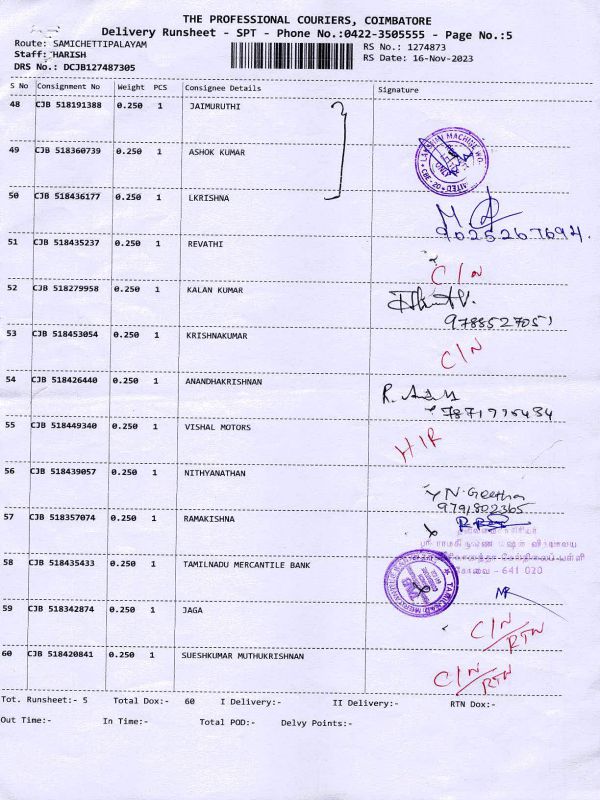 THE PROFESSIONAL COURIERS, COIMBATORE
Delivery Runsheet - SPT - Phone No.:0422-3505555 - Page No.:5
Route: SAMICHETTIPALAYAM
RS No.: 1274873
Staff: HARISH
RS Date: 16-Nov-2023
DRS No.: DCJB127487305
S No Consignment No Weight PCS Consignee Details Signature
48 CJB 518191388 0.250 1 JAIMURUTHI
49 CJB 518360739 0.250 1 ASHOK KUMAR
LAKSHMI MACHINE WO
CBE - 20
50 CJB 518436177 0.250 1 LKRISHNA
9025267694
51 CJB 518435237 0.250 1 REVATHI
C/N
52 CJB 518279958 0.250 1 KALAN KUMAR
9788527051
53 CJB 518453054 0.250 1 KRISHNAKUMAR
C/N
54 CJB 518426440 0.250 1 ANANDHAKRISHNAN
55 CJB 518449340 0.250 1 VISHAL MOTORS
56 CJB 518439057 0.250 1 NITHYANATHAN
N. Geetha
9791802365
57 CJB 518357074 0.250 1 RAMAKISHNA
58 CJB 518435433 0.250 1 TAMILNADU MERCANTILE BANK
கோவை - 641 020
59 CJB 518342874 0.250 1 JAGA
C/N
RTN
60 CJB 518420841 0.250 1 SUESHKUMAR MUTHUKRISHNAN
C/N
RTN
Tot. Runsheet:- 5 Total Dox:- 60 I Delivery:- II Delivery:- RTN Dox:-
Out Time:- In Time:- Total POD:- Delvy Points:-